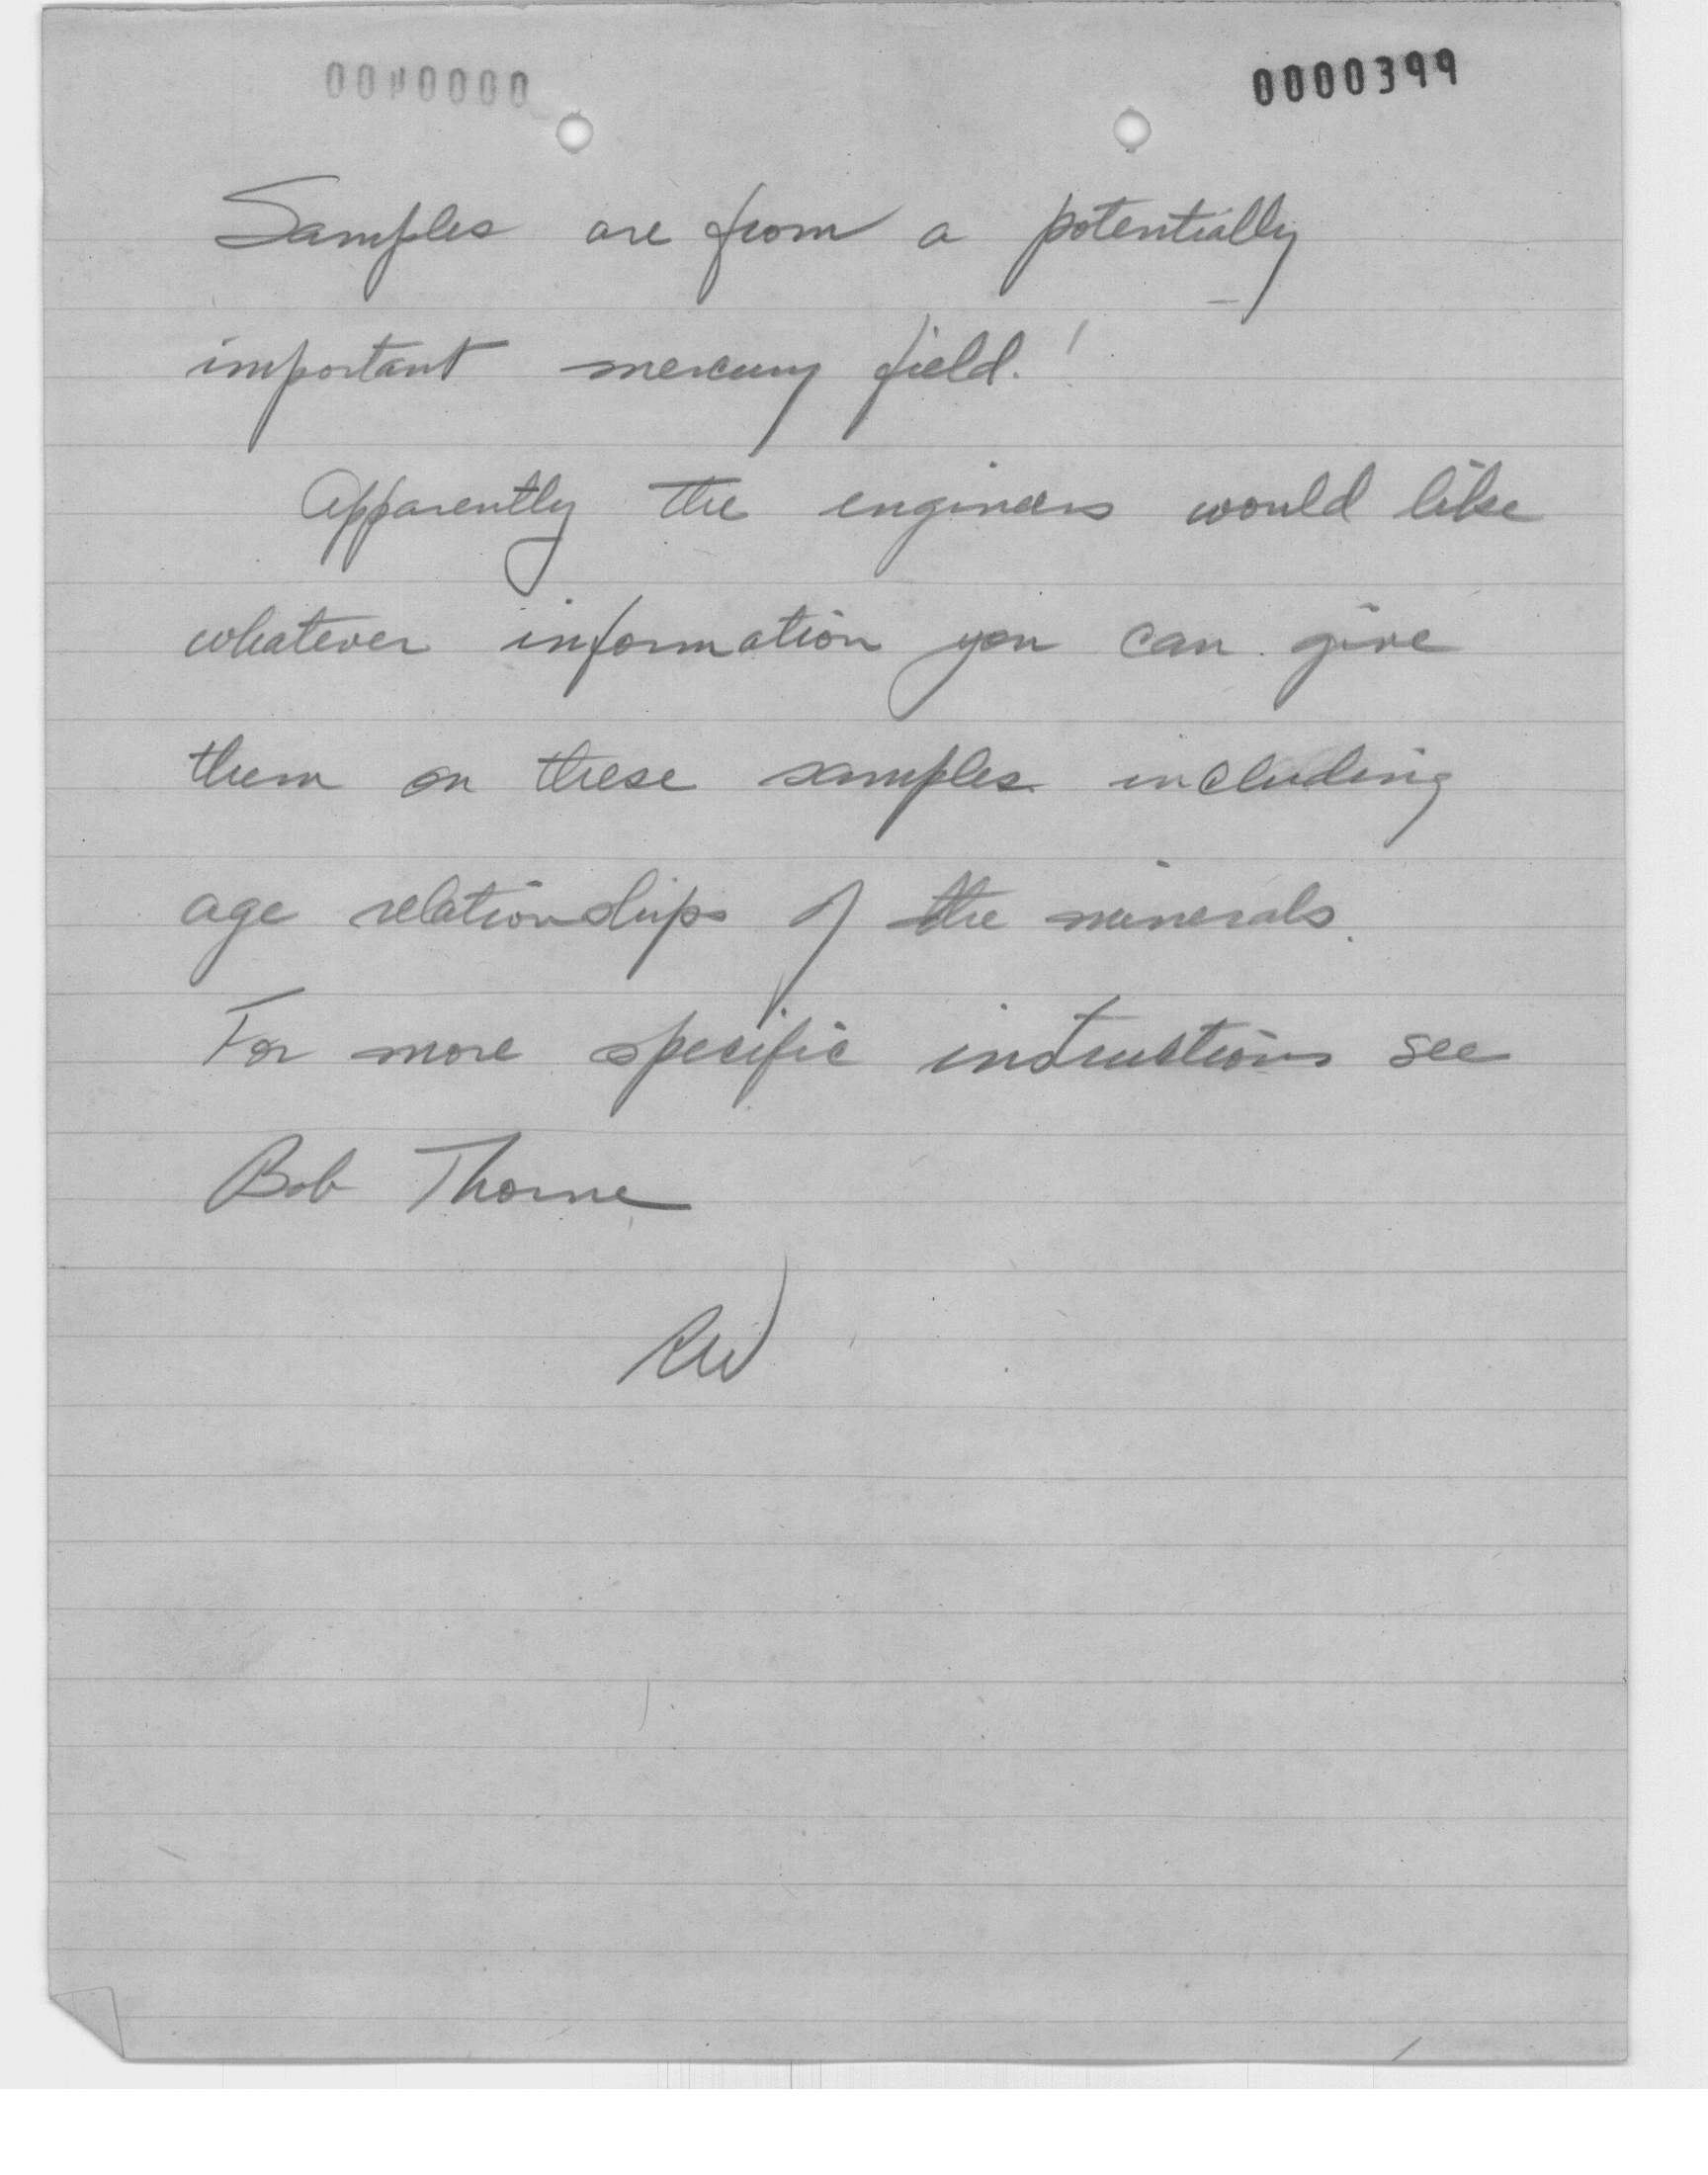 0000000
0000399
Samples are from a potentially
important mercury field!
Apparently the engineers would like
whatever information you can give
them on these samples including
age relationships of the minerals.
For more specific instructions see
Bob Thorne
RW